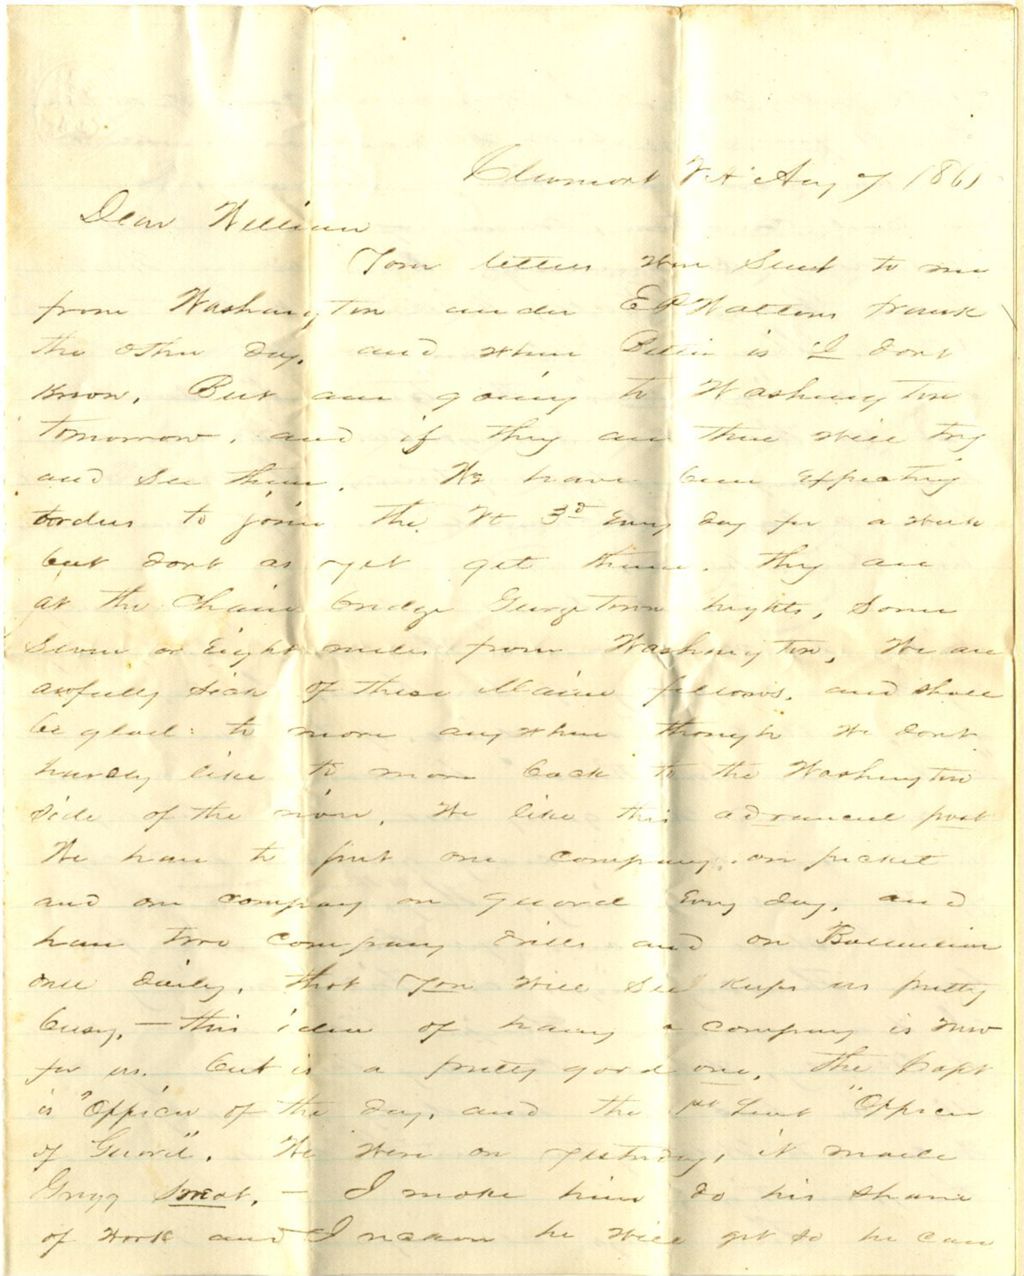 Clermont Va Aug 7 1861
Dear William
Your letters were sent to me
from Washington under E P Waltons frank
the other day. and where is I dont
know. But am going to Washington
tomorrow. and if they are there will try
and see them. We have been expecting
orders to join the Vt 3d every day for a week
but dont as yet get them. they are
at the Chain bridge Georgetown hights, some
Seven or Eight miles from Washington, We are
awfully sick of these Maine fellows. and shall
be glad to move anywhere though We dont
hardly like to move back to the Washington
side of the river. We like this advanced post
We have to put one company on picket
and one company on guard every day, and
have two company drills and one Battalion
one daily. that You will see keeps us pretty
busy. — this idea of having a company is new
for us. but is a pretty good one. the Capt
is "Officer of the day, and the 1st Lieut "Officer
of Guard". We were on yesterday, it made
Grigg sweat. — I make him do his share
of work and I reckon he will get so he can